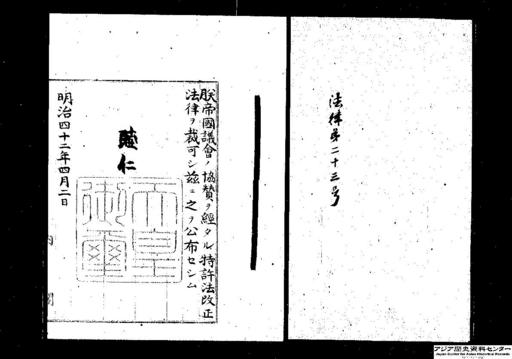 法律第二十三号
朕帝國議會ノ協贊ヲ經タル特許法改正
法律ヲ裁可シ茲ニ之ヲ公布セシム
睦仁
天皇御璽
明治四十二年四月二日
内閣
アジア歴史資料センター
Japan Center for Asian Historical Records